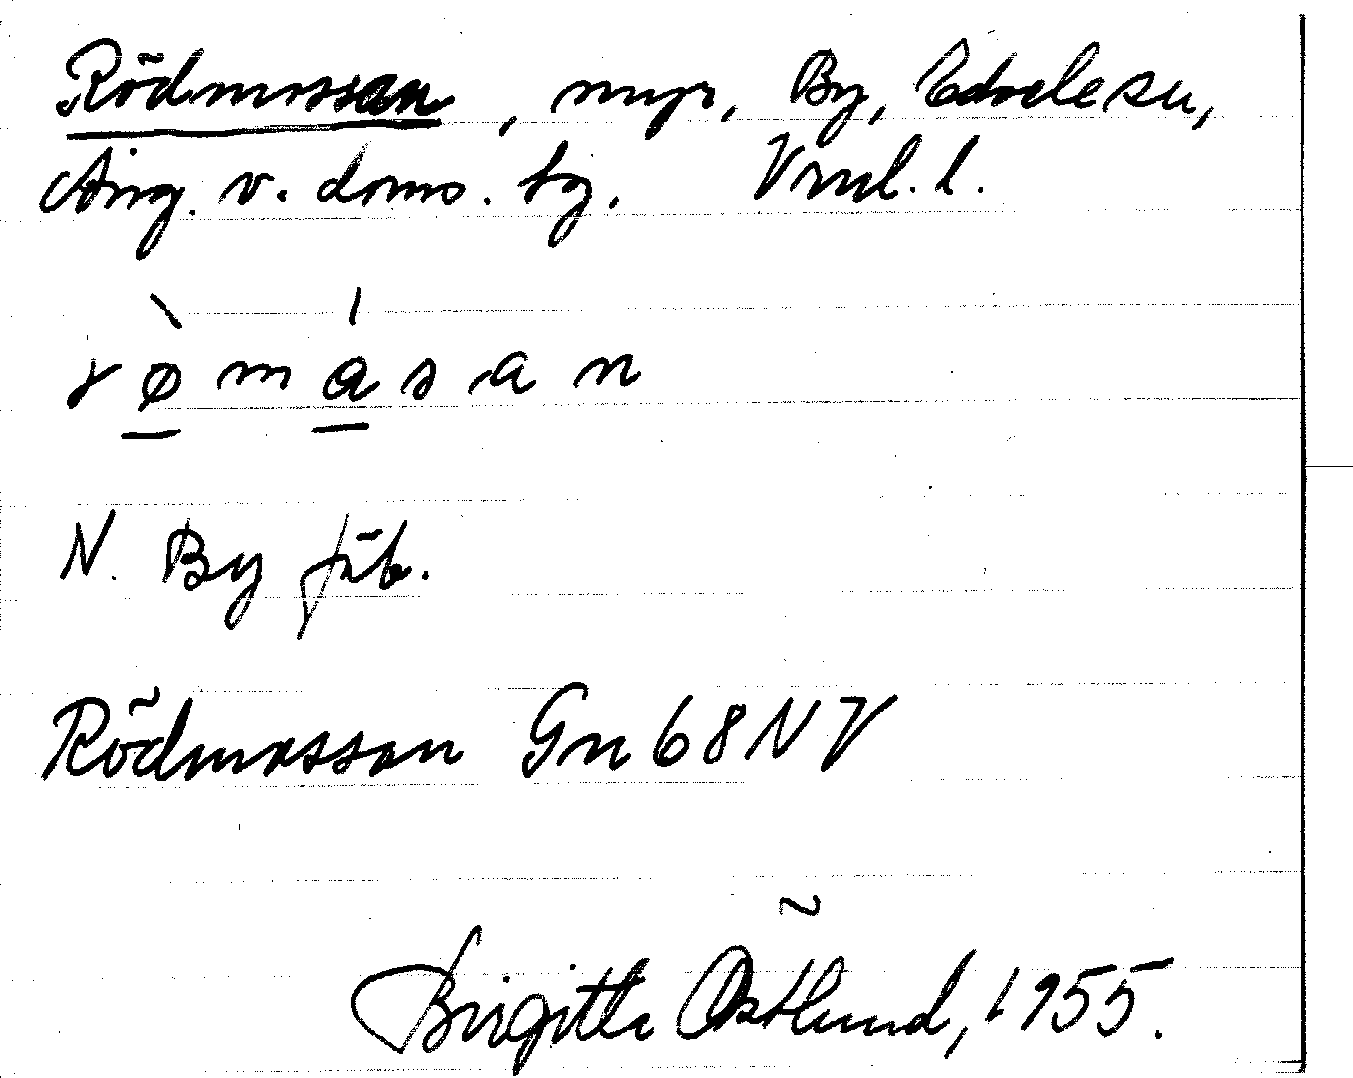 Rödmossan, myr, By, Edoelesu,
Äng. v. doms. tg. Vrml. l.
rømåsan
N. By fäb.
Rödmossan Gn 68 NV
Birgitta Östlund, 1955.